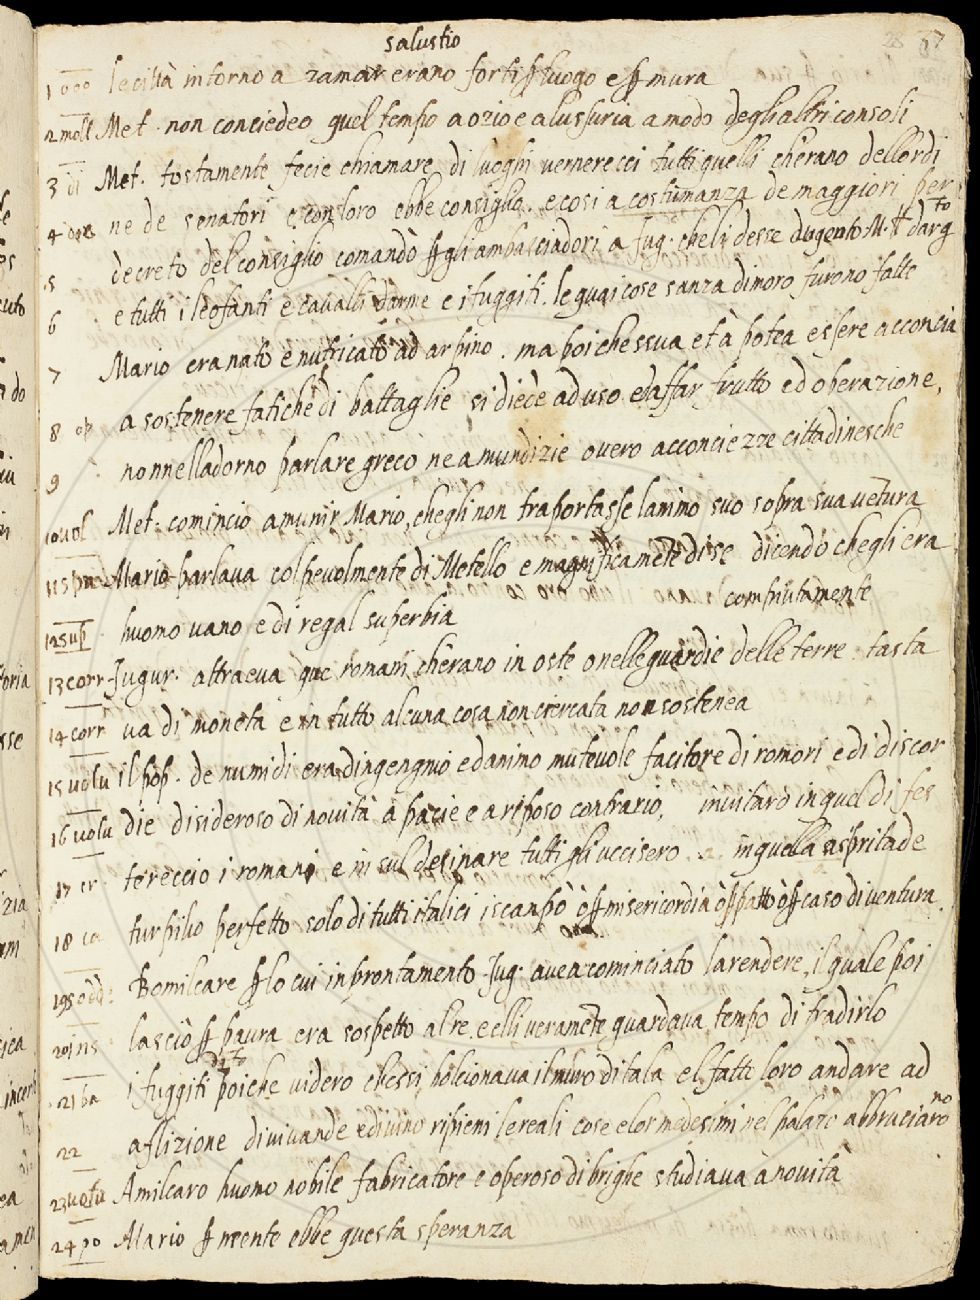 salustio
28 37
1 ooo le città intorno a zamar erano forti ꝑ luogo e ꝑ mura
2 moll Met. non conciedeo quel tempo a ozio e a lussuria a modo deglialtri consoli
3 di Met. tostamente fecie chiamare di luoghi vernerecci tutti quelli cherano dellordi
4 ne de senatori e con loro ebbe consiglio. e cosi a costumanza de maggiori per
5 decreto del consiglio comandò ꝑ gli ambasciadori a Jug. che li desse dugento M. ℔ darg to
6 e tutti i leofanti e cavalli darme e i fuggiti. le quai cose sanza dimoro furono fatte
7 Mario era nato e nutricato ad arpino. ma poi chessua età potea essere acconcia
8 op a sostenere fatiche di battaglie si diede ad uso daffar frutto ed operazione,
9 nonnelladorno parlare greco ne a mundizie overo acconciezze cittadinesche
10 vol Met. comincio a munir Mario, chegli non traportasse lanimo suo sopra sua vetura
11 Mario parlava colpevolmente di Metello e magnificamēte di se dicendo chegli era
compiutamente
12 sup huomo vano e di regal superbia
13 corr Jugur. attraeva que romani cherano in oste o nelle guardie delle terre. tasta
14 corr va di moneta e in tutto alcuna cosa non ciercata non sostenea
15 volu il pop. de numidi era dingengnio e danimo mutevole facitore di romori e di discor
16 volu die disideroso di novità a pacie e a riposo contrario, invitaro in quel di fes
17 cr tereccio i romani e in sul desinare tutti gli uccisero .. in quella aspritade
18 ca turpilio perfetto solo di tutti italici iscanpò ò ꝑ misericordia ò ꝑ patto ò ꝑ caso di ventura
19 Bomilcare ꝑ lo cui inprontamento Jug. avea cominciato larendere, il quale poi
20 ins lasciò ꝑ paura era sospetto al re. e elli veramēte guardava tempo di tradirlo
21 ba i fuggiti poiche videro chessi bolcionava il muro di tala e l fatti loro andare ad
22 aflizione di vivande e di vino ripieni le reali cose e lor medesimi nel palazo abbruciaro no
23 volu Amilcaro huomo nobile fabricatore e operoso di brighe studiava à novità
24 po Mario ꝑ niente ebbe questa speranza